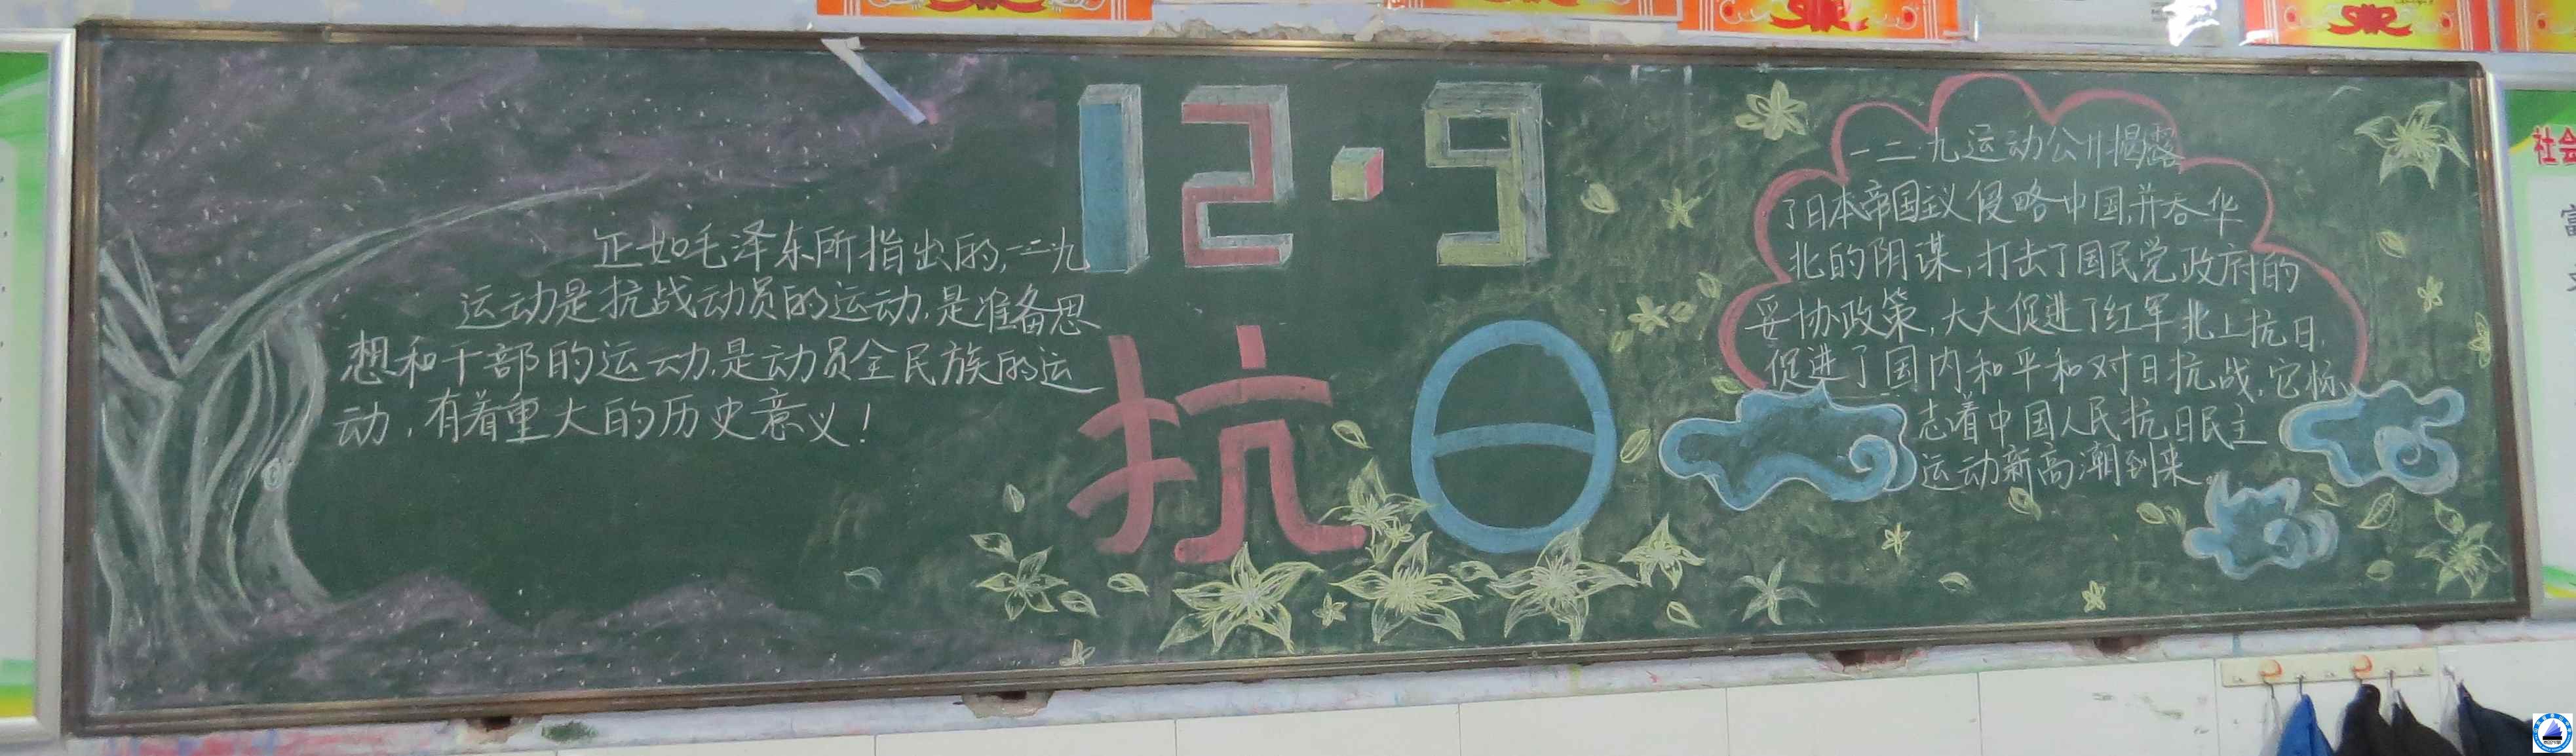 正如毛泽东所指出的,一二九
运动是抗战动员的运动,是准备思
想和干部的运动,是动员全民族的运
动,有着重大的历史意义!
12·9
抗日
一二·九运动公开揭露
了日本帝国主义侵略中国,并吞华
北的阴谋,打击了国民党政府的
妥协政策,大大促进了红军北上抗日,
促进了国内和平和对日抗战,它标
志着中国人民抗日民主
运动新高潮到来。
社会